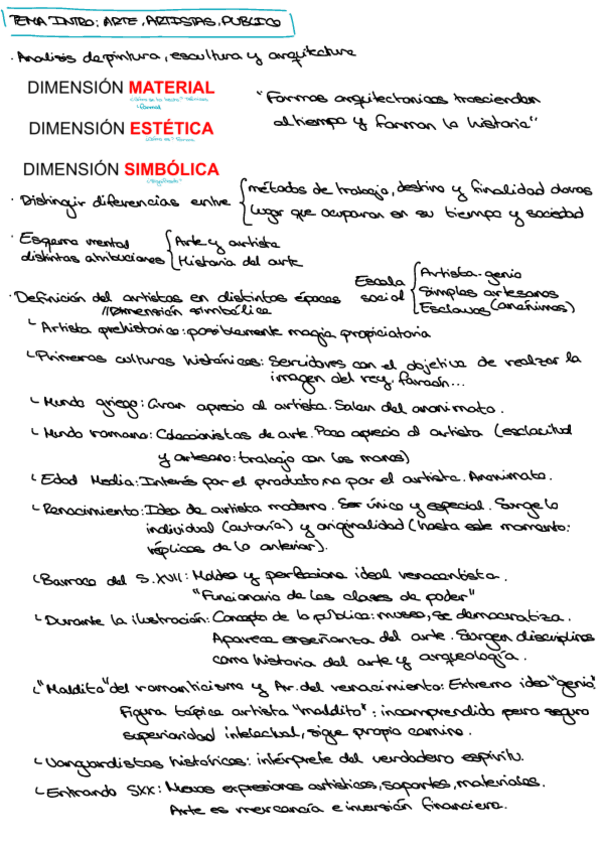 TEMA INTRO: ARTE, ARTISTAS, PUBLICO
· Analisis de pintura, escultura y arquitectura
DIMENSIÓN MATERIAL
formal
"Formas arquitectonicas trascienden
al tiempo y forman la historia"
DIMENSIÓN ESTÉTICA
DIMENSIÓN SIMBÓLICA
"Significado"
· Distinguir diferencias entre { métodos de trabajo, destino y finalidad obras
lugar que ocuparon en su tiempo y sociedad
· Esquema mental distintas atribuciones { Arte y artista
Historia del arte
Escala social { Artista-genio
Simples artesanos
Esclavos (anónimos)
· Definición del artistas en distintas épocas
//Dimensión simbólica
↳ Artista prehistorico: posiblemente magia propiciatoria
↳ Primeras culturas históricas: Servidores con el objetivo de realzar la
imagen del rey, faraón...
↳ Mundo griego: Gran aprecio al artista. Salen del anonimato.
↳ Mundo romano: Coleccionistas de arte. Poco aprecio al artista (esclavitud
y artesano: trabajo con las manos)
↳ Edad Media: Interés por el producto no por el artista. Anonimato.
↳ Renacimiento: Idea de artista moderno. Ser único y especial. Surge lo
individual (autoría) y originalidad (hasta este momento:
réplicas de lo anterior).
↳ Barroco del S.XVII: Moldea y perfecciona ideal renacentista.
"Funcionario de las clases de poder"
↳ Durante la ilustración: Concepto de lo público: museo, se democratiza.
Aparece enseñanza del arte. Surgen disciplinas
como historia del arte y arqueología.
↳ "Maldito" del romanticismo y Ar. del renacimiento: Extremo idea "genio".
Figura tópica artista "maldito": incomprendido pero seguro
superioridad intelectual, sigue propio camino.
↳ Vanguardistas históricos: intérprete del verdadero espíritu.
↳ Entrando SXX: Nuevas expresiones artísticas, soportes, materiales.
Arte es mercancía e inversión financiera.